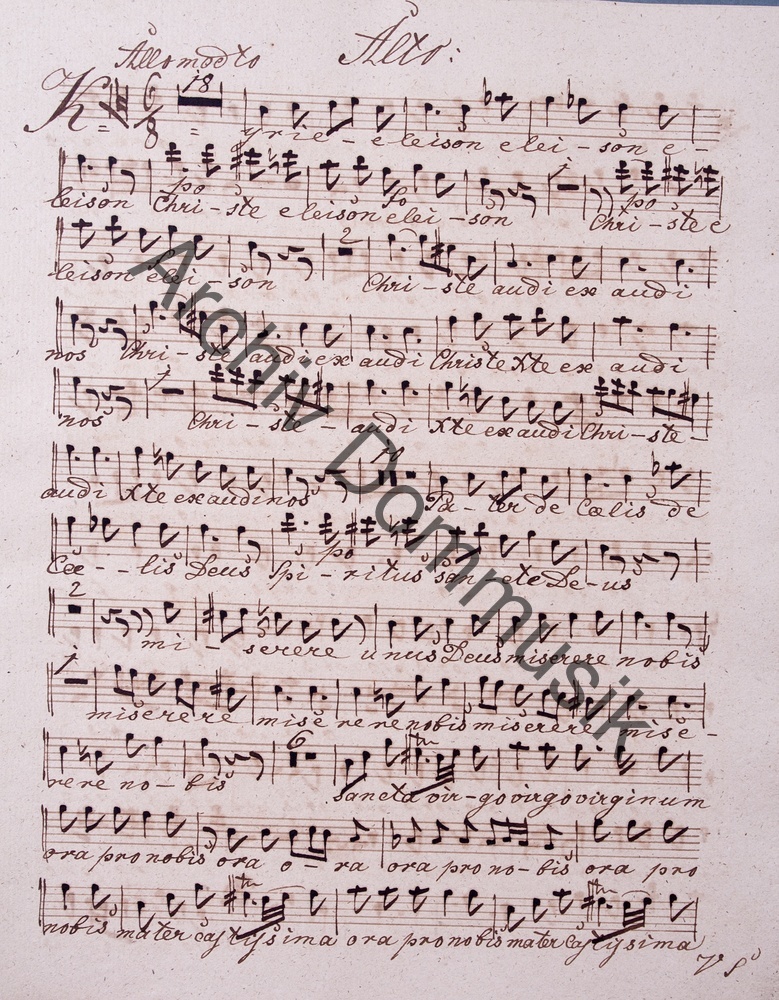 Alto:
Allo modto
18
Kyrie - eleison elei - son e -
6
8
leison Chri - ste eleison elei - son Christe e
po fo 1 po
leison elei - son Chri - ste audi ex audi
2
nos Chri - ste audi ex audi Christe Xte ex audi
nos Chri - ste - audi Xte exaudi Chri - ste -
1
audi Xte exaudi nos Pa - ter de Coelis de
10
Coe - - lis Deus Spi - ritus san cte De - us
po
2
mi - serere unus Deus miserere nobis
1
miserere misererenobis miserere mise -
rere no - bis Sancta vir - go virgo virginum
6 tr
ora pro nobis ora o - ra ora pro no - bis ora pro
nobis mater castissima ora pro nobis mater castissima
tr tr
V S
Archiv Dommusik